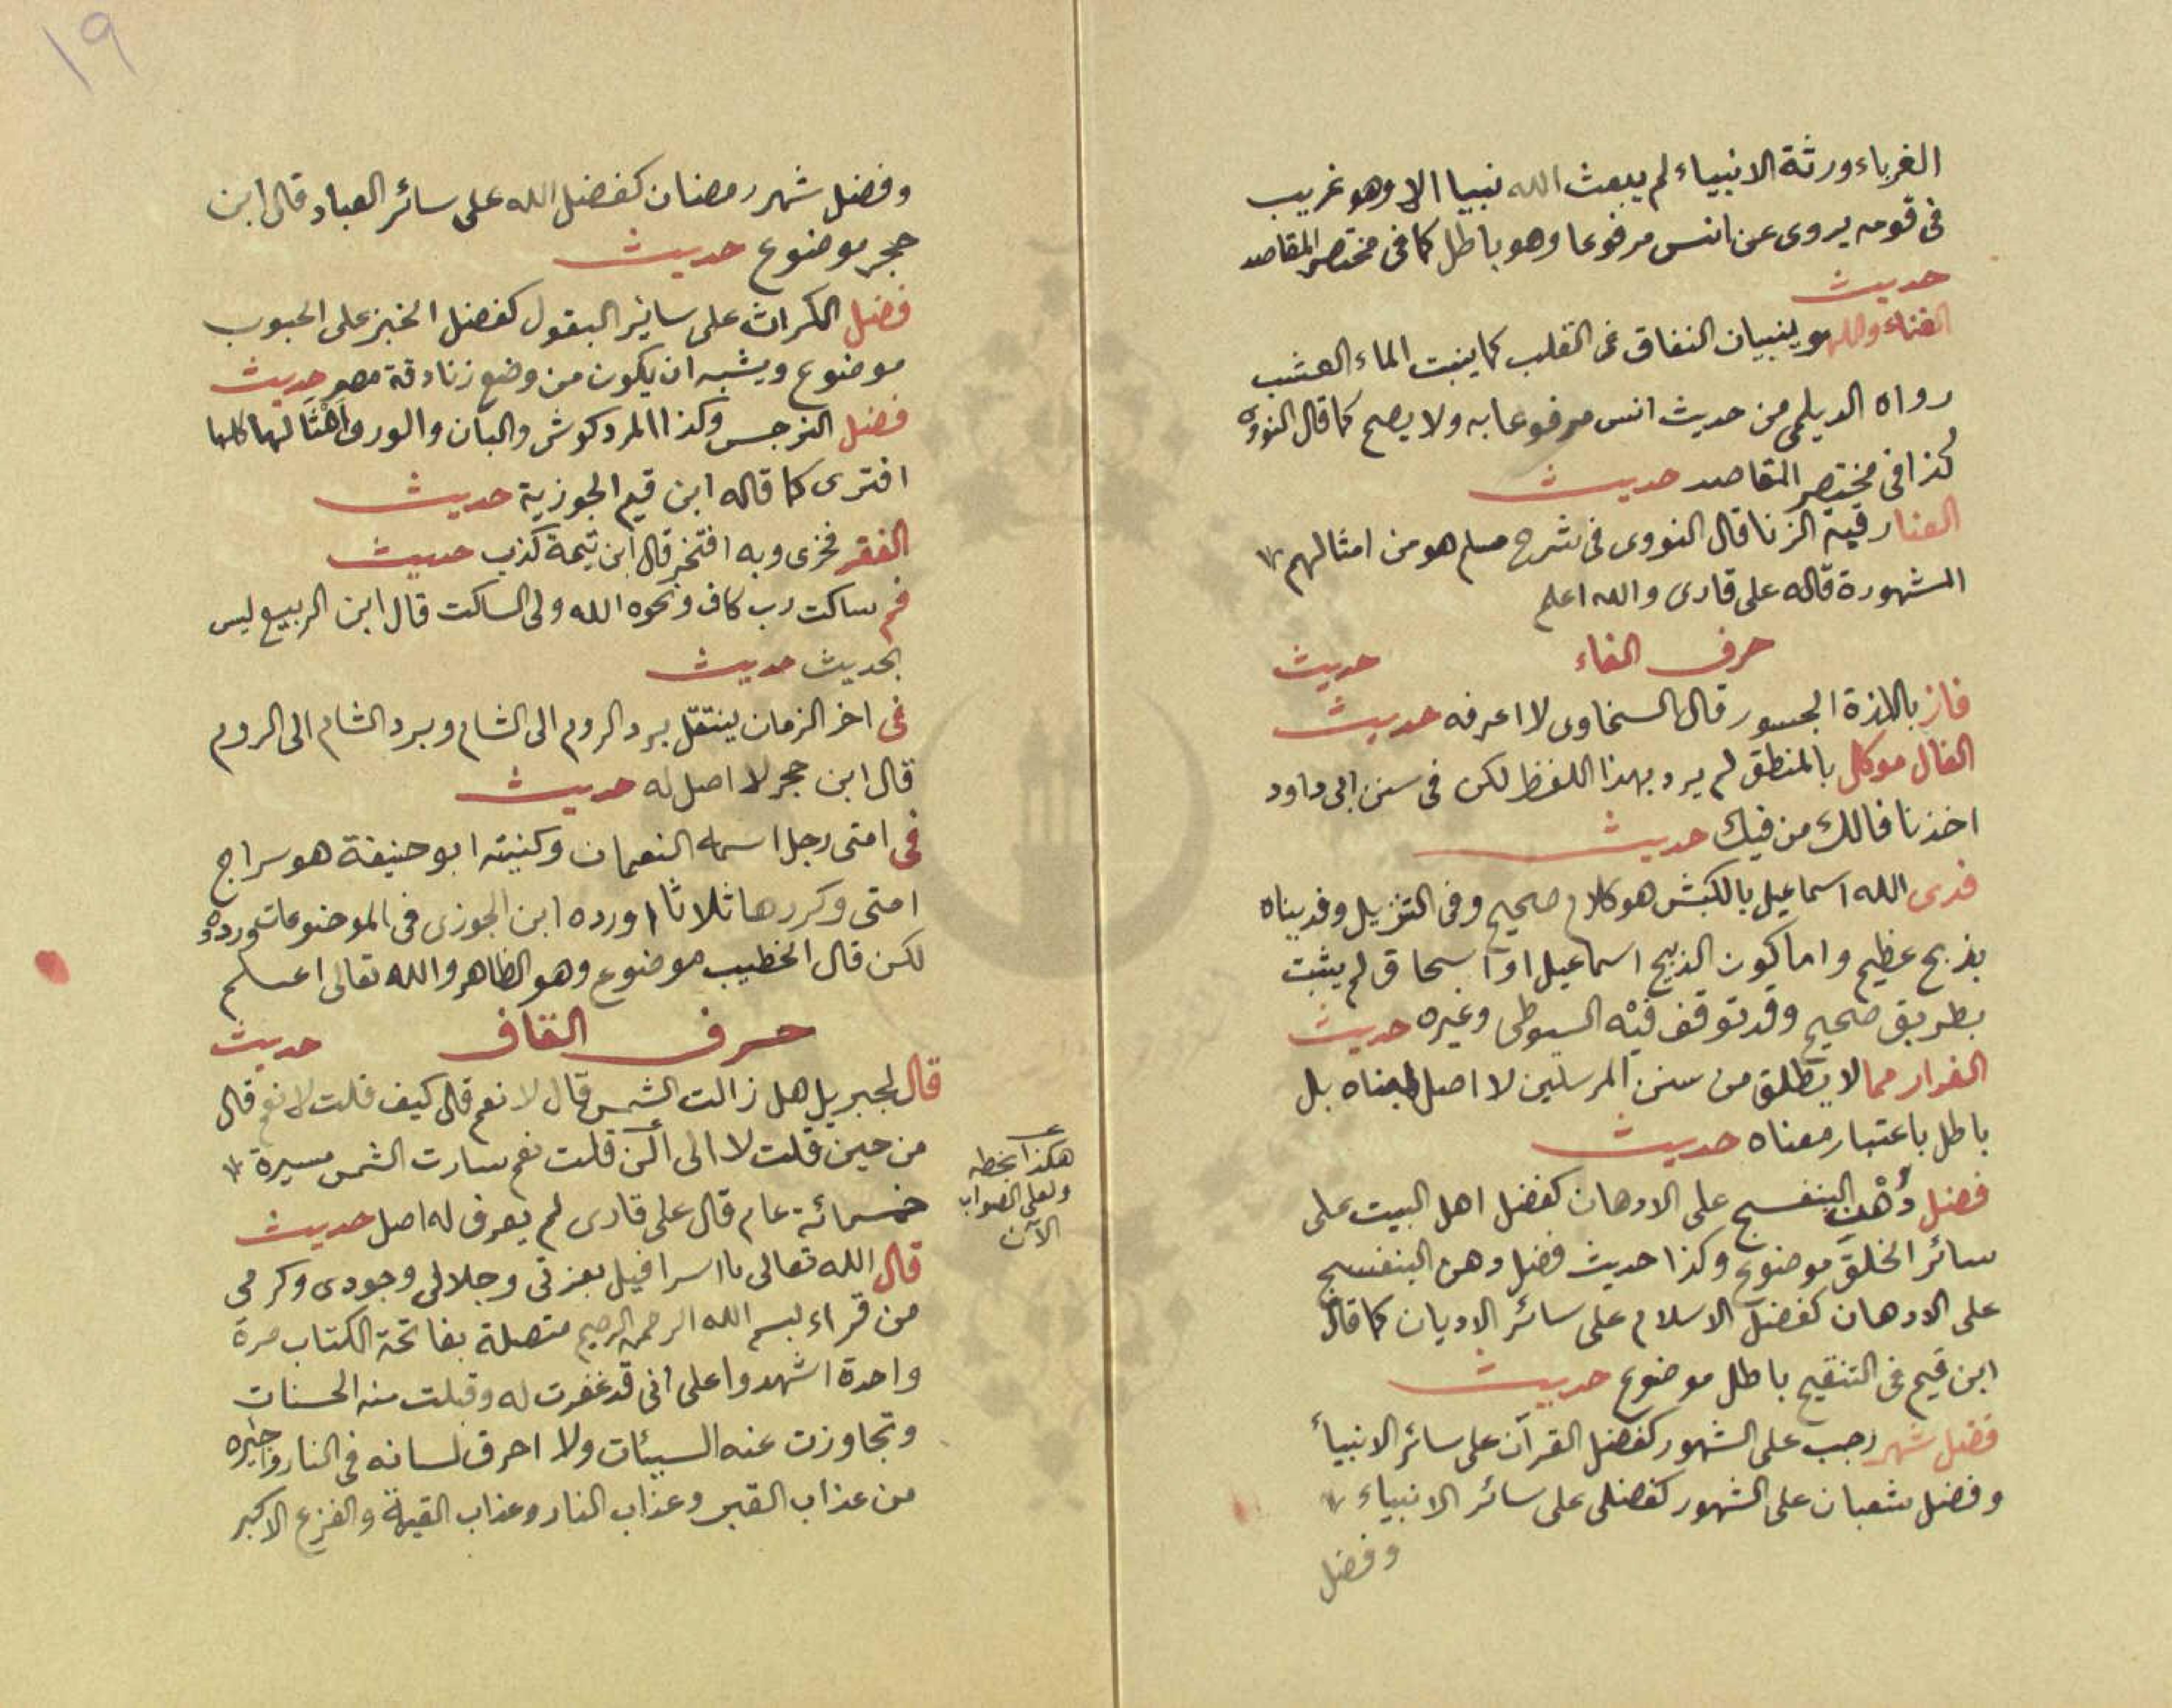 الغرباء ورثة الانبياء لم يبعث الله نبيا الا وهو غريب
فى قومه يروى عن انس مرفوعا وهو باطل كما فى مختصر المقاصد
حديث
الغناء واللهو ينبيان النفاق فى القلب كما ينبت الماء العشب
رواه الديلمى من حديث انس مرفوعا به ولا يصح كما قال النووى
كذا فى مختصر المقاصد حديث
الغنا رقية الزنا قال النووى فى شرح مسلم هو من امثالهم
المشهورة قاله على قارى والله اعلم
حرف الفاء حديث
فاز باللذة الجسور قال السخاوى لا اعرفه حديث
الفال موكل بالمنطق لم يرد بهذا اللفظ لكن فى سنن ابى داود
اخذنا فالك من فيك حديث
فدى الله اسماعيل بالكبش هو كلام صحيح وفى التنزيل وفديناه
بذبح عظيم واما كون الذبيح اسماعيل او اسحاق لم يثبت
بطريق صحيح وقد توقف فيه السيوطى وغيره حديث
الفرار مما لا يطلق من سنن المرسلين لا اصل لمبناه بل
باطل باعتبار معناه حديث
فضل دُهْن البنفسج على الادهان كفضل اهل البيت على
سائر الخلق موضوع وكذا حديث فضل دهن البنفسج
على الادهان كفضل الاسلام على سائر الاديان كما قال
ابن قيم فى التنقيح باطل موضوع حديث
فضل شهر رجب على الشهور كفضل القرآن على سائر الانبيأ
وفضل شعبان على الشهور كفضلى على سائر الانبياء
وفضل
١٩
وفضل شهر رمضان كفضل الله على سائر العباد قال ابن
حجر موضوع حديث
فضل الكراث على سائر البقول كفضل الخبز على الحبوب
موضوع ويشبه ان يكون من وضع زنادقة مصر حديث
فضل النرجس وكذا المردكوش والبان والورد وامثالها كلها
افترى كما قاله ابن قيم الجوزية حديث
الفقر فخرى وبه افتخر قال ابن تيمة كذب حديث
فم ساكت رب كاف ونحوه الله ولى الساكت قال ابن الربيع ليس
بحديث حديث
فى اخر الزمان ينتقل برد الروم الى الشام وبرد الشام الى الروم
قال ابن حجر لا اصل له حديث
فى امتى رجل اسمه النعمان وكنيته ابو حنيفة هو سراج
امتى وكررها ثلاثا اورده ابن الجوزى فى الموضوعات ورده
لكن قال الخطيب موضوع وهو الظاهر والله تعالى اعلم
حرف القاف حديث
قال لجبريل هل زالت الشمس قال لا نعم قال كيف قلت لا نعم قال
من حين قلت لا الى الن قلت نعم سارت الشمس مسيرة
خمسمائة عام قال على قارى لم يعرف له اصل حديث
قال الله تعالى يا اسرافيل بعزتى وجلالى وجودى وكرمى
من قراء بسم الله الرحمن الرحيم متصلة بفاتحة الكتاب مرة
واحدة اشهدوا على انى قد غفرت له وقبلت منه الحسنات
وتجاوزت عنه السيئات ولا احرق لسانه فى النار واجيره
من عذاب القبر وعذاب النار وعذاب القيمة والفزع الاكبر
هكذا بخطه
ولعل الصواب
الآن